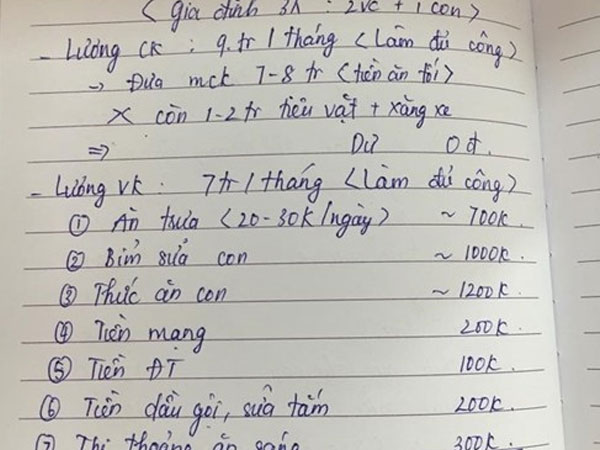 ( Gia đình 3N : 2vc + 1 con )
- Lương CK : 9.tr / tháng ( Làm đủ công )
→ Đưa mck 7-8 tr ( tiền ăn tối )
X còn 1-2 tr tiêu vặt + xăng xe
⇒ Dư 0 đ.
- Lương VK : 7 tr / tháng ( Làm đủ công )
① Ăn trưa ( 20-30K / ngày ) ~ 700K.
② Bỉm sữa con ~ 1000K.
③ Thức ăn con ~ 1200K.
④ Tiền mạng 200K.
⑤ Tiền ĐT 100K.
⑥ Tiền dầu gội, sữa tắm 200K.
⑦ Thi thoảng ăn sáng 300K.